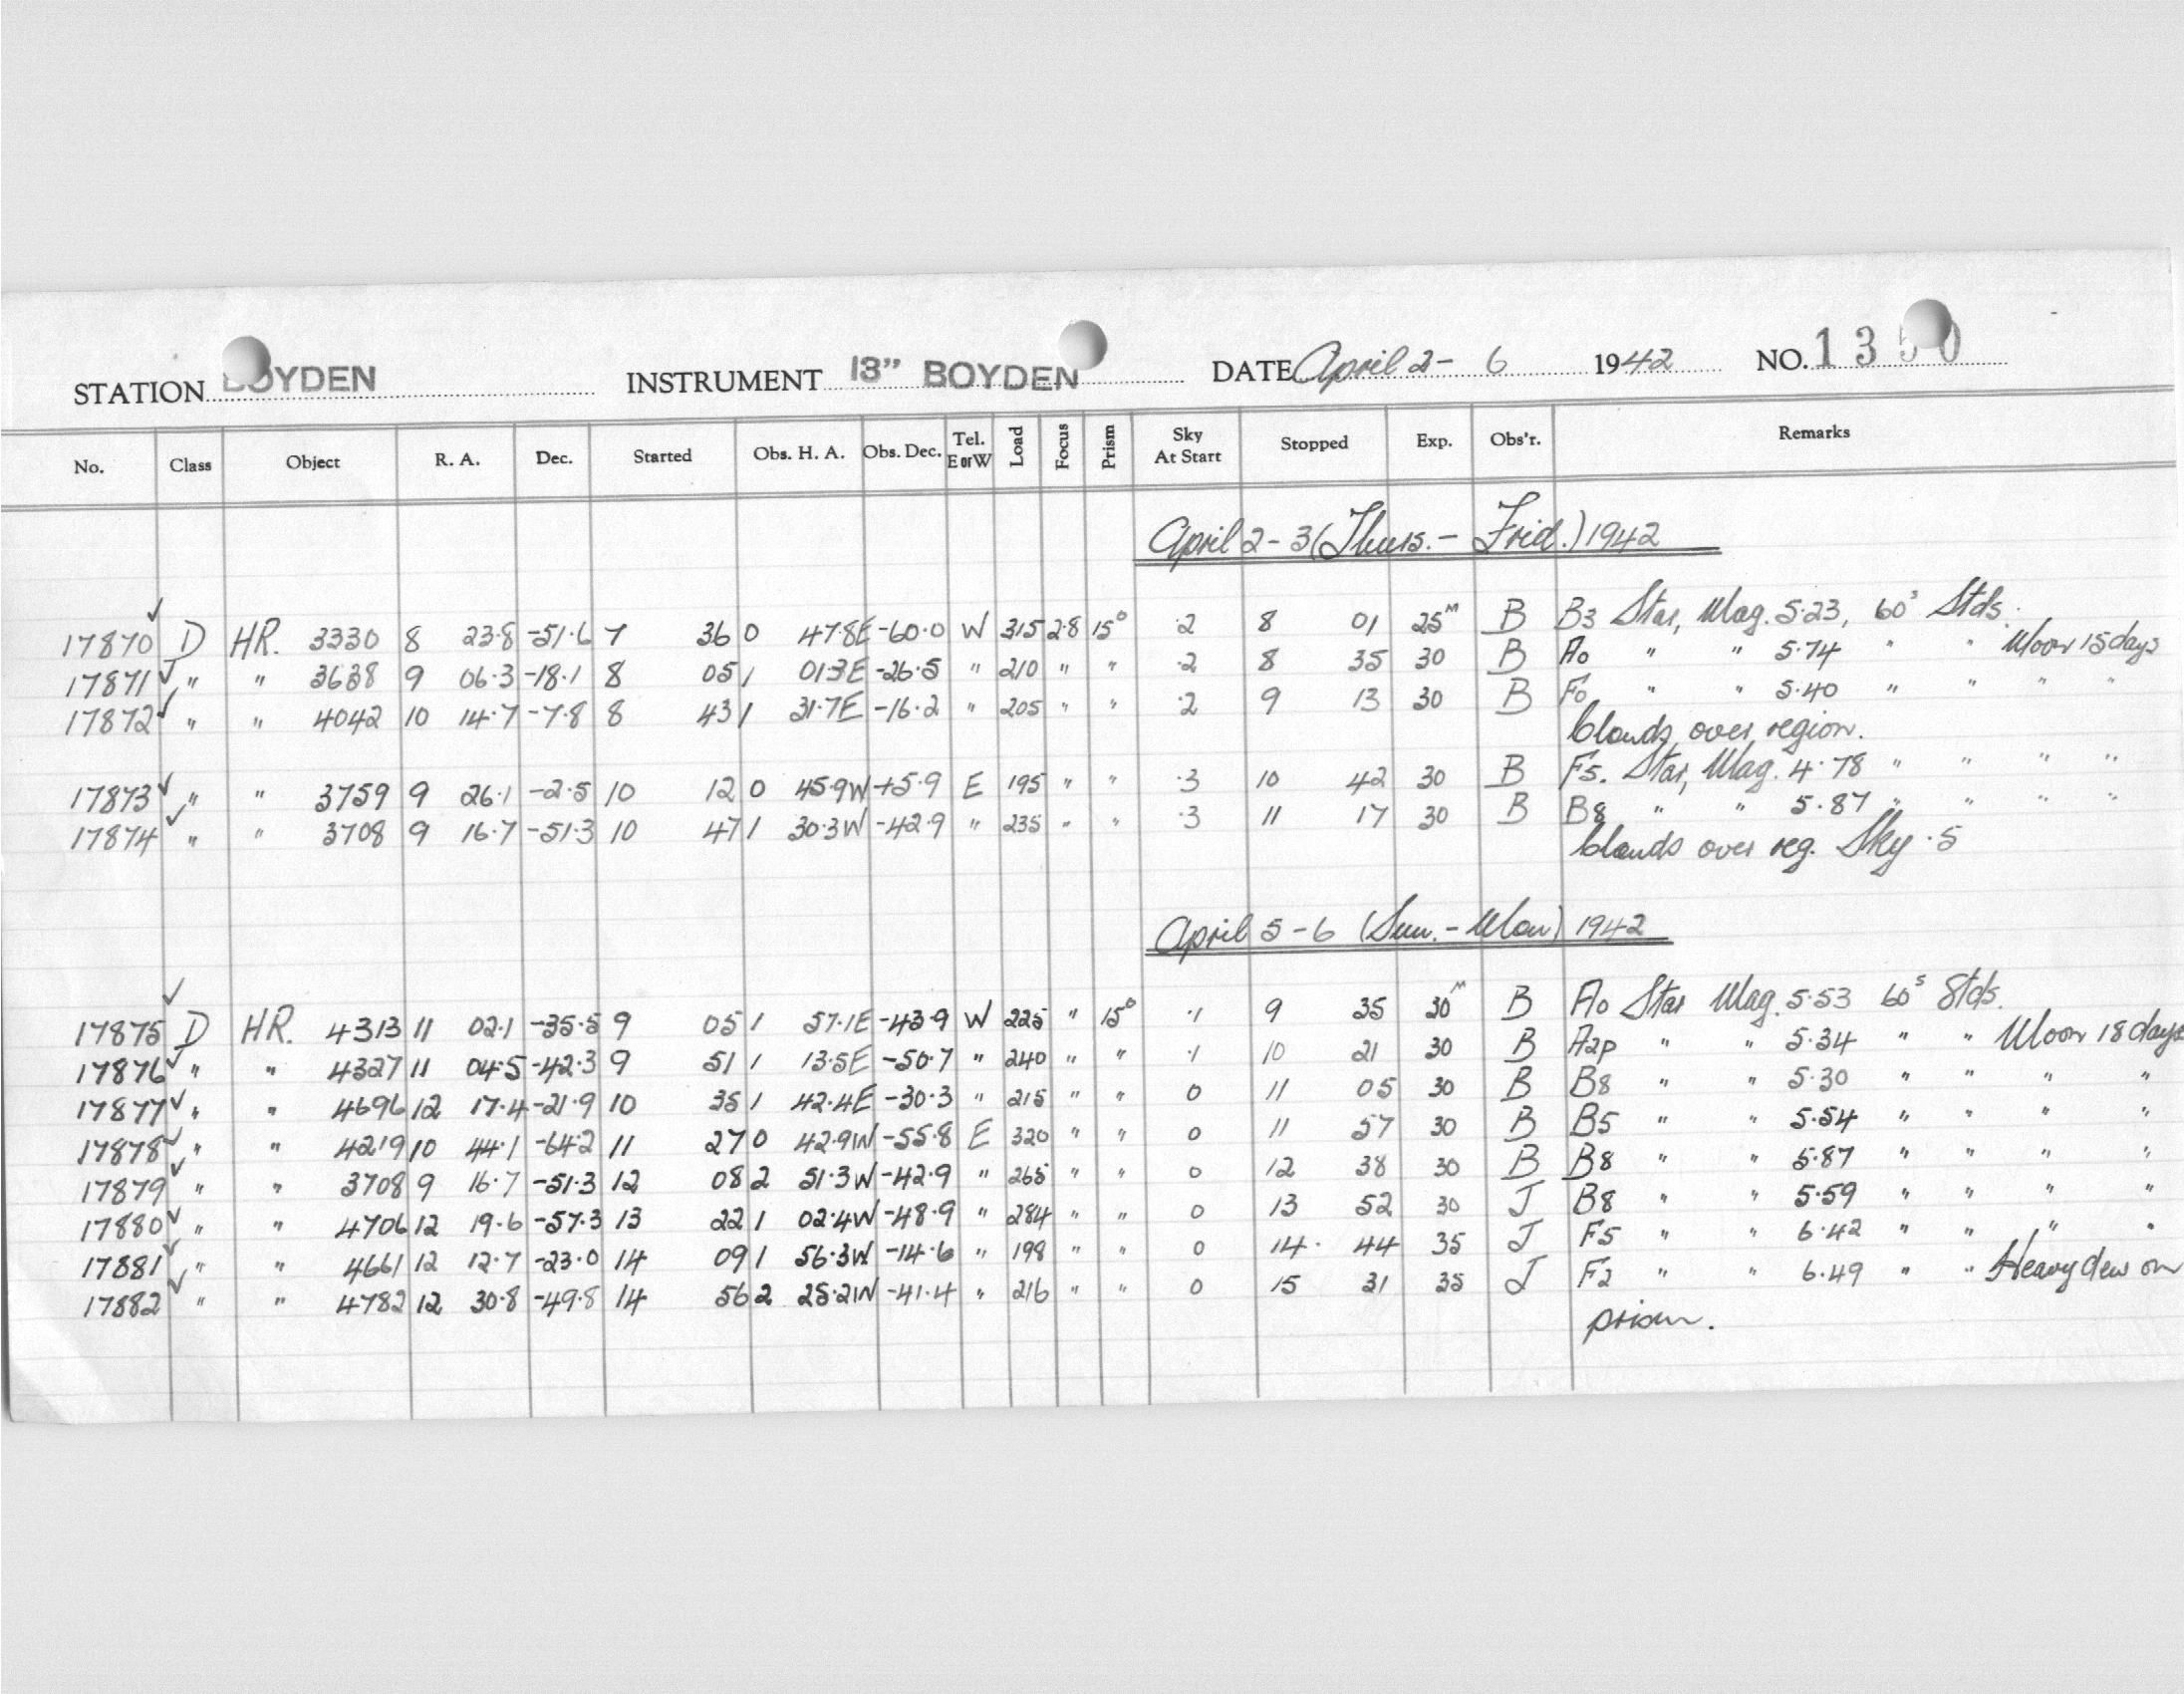 STATION BOYDEN INSTRUMENT 13" BOYDEN DATE April 2 - 6 1942 NO. 1350
No. Class Object R. A. Dec. Started Obs. H. A. Obs. Dec. Tel. E or W Load Focus Prism Sky At Start Stopped Exp. Obs'r. Remarks
April 2 - 3 (Thurs. - Frid.) 1942
17870 ✓ D HR. 3330 8 23.8 -51.6 7 36 0 47.8E -60.0 W 315 2.8 15° .2 8 01 25ᴹ B B3 Star, Mag. 5.23, 60ˢ Stds.
17871 ✓ " " 3638 9 06.3 -18.1 8 05 1 01.3E -26.5 " 210 " " .2 8 35 30 B A0 " " 5.74 " " Moon 15 days
17872 ✓ " " 4042 10 14.7 -7.8 8 43 1 31.7E -16.2 " 205 " " .2 9 13 30 B F0 " " 5.40 " " " "
Clouds over region.
17873 ✓ " " 3759 9 26.1 -2.5 10 12 0 45.9W +5.9 E 195 " " .3 10 42 30 B F5. Star, Mag. 4.78 " " " "
17874 ✓ " " 3708 9 16.7 -51.3 10 47 1 30.3W -42.9 " 235 " " .3 11 17 30 B B8 " " 5.87 " " " "
Clouds over reg. Sky .5
April 5 - 6 (Sun. - Mon) 1942
17875 ✓ D HR. 4313 11 02.1 -35.5 9 05 1 57.1E -43.9 W 225 " 15° .1 9 35 30ᴹ B A0 Star Mag. 5.53 60ˢ Stds.
17876 ✓ " " 4327 11 04.5 -42.3 9 51 1 13.5E -50.7 " 240 " " .1 10 21 30 B A2p " " 5.34 " " Moon 18 days
17877 ✓ " " 4696 12 17.4 -21.9 10 35 1 42.4E -30.3 " 215 " " 0 11 05 30 B B8 " " 5.30 " " " "
17878 ✓ " " 4219 10 44.1 -64.2 11 27 0 42.9W -55.8 E 320 " " 0 11 57 30 B B5 " " 5.54 " " " "
17879 ✓ " " 3708 9 16.7 -51.3 12 08 2 51.3W -42.9 " 265 " " 0 12 38 30 B B8 " " 5.87 " " " "
17880 ✓ " " 4706 12 19.6 -57.3 13 22 1 02.4W -48.9 " 284 " " 0 13 52 30 J B8 " " 5.59 " " " "
17881 ✓ " " 4661 12 12.7 -23.0 14 09 1 56.3W -14.6 " 198 " " 0 14 44 35 J F5 " " 6.42 " " " "
17882 ✓ " " 4782 12 30.8 -49.8 14 56 2 25.2W -41.4 " 216 " " 0 15 31 35 J F2 " " 6.49 " " Heavy dew on
prism.